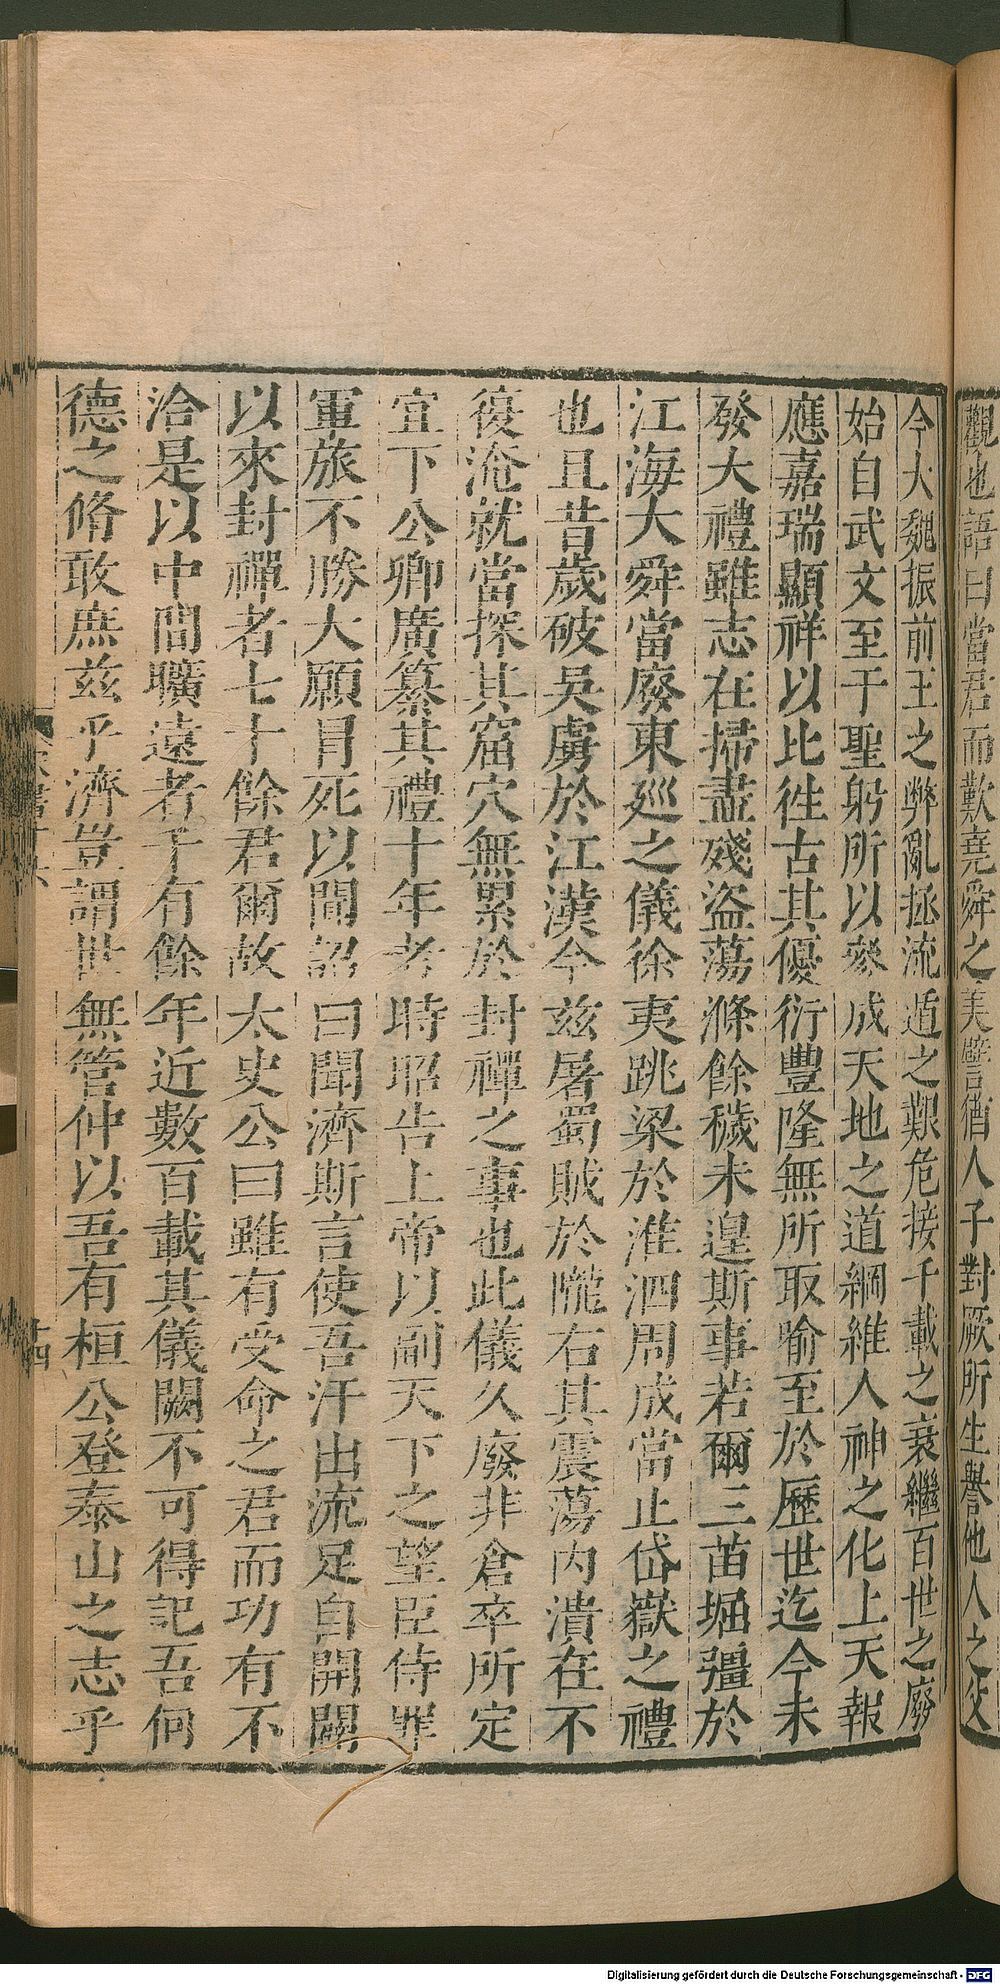 觀也語曰當君而歎堯舜之美譬猶人子對厥所生譽他人之父
今大魏振前王之弊亂拯流遁之艱危接千載之衰繼百世之廢
始自武文至于聖躬所以參成天地之道綱維人神之化上天報
應嘉瑞顯祥以比徃古其優衍豐隆無所取喻至於歷世迄今未
發大禮雖志在掃盡殘盜蕩滌餘穢未遑斯事若爾三苗堀彊於
江海大舜當廢東廵之儀徐夷跳梁於淮泗周成當止岱嶽之禮
也且昔歲破吳虜於江漢今兹屠蜀賊於隴右其震蕩內潰在不
復淹就當探其窟穴無累於封禪之事也此儀久廢非倉卒所定
宜下公卿廣纂其禮十年考時昭告上帝以副天下之望臣待罪
軍旅不勝大願冒死以聞詔曰聞濟斯言使吾汗出流足自開闢
以來封禪者七十餘君爾故太史公曰雖有受命之君而功有不
洽是以中間曠遠者千有餘年近數百載其儀闕不可得記吾何
德之脩敢庶兹乎濟豈謂世無管仲以吾有桓公登泰山之志乎
十四
Digitalisierung gefördert durch die Deutsche Forschungsgemeinschaft - DFG